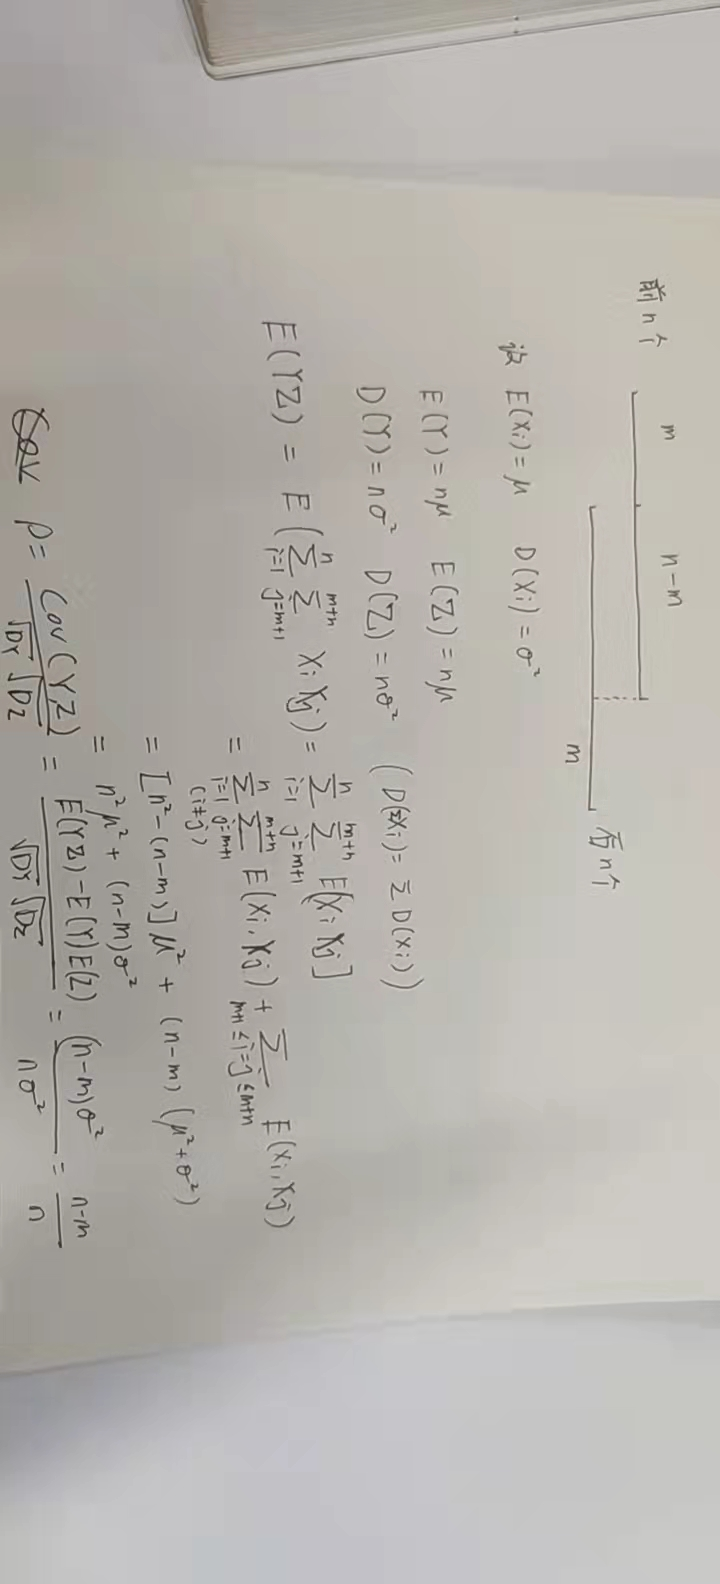 m n-m
前n个
m 后n个
设 E(Xi)=μ D(Xi)=σ²
E(Y)=nμ E(Z)=nμ
D(Y)=nσ² D(Z)=nσ² (D(ΣXi)=ΣD(Xi))
E(YZ) = E(∑_{i=1}^{n} ∑_{j=m+1}^{m+n} XiXj) = ∑_{i=1}^{n} ∑_{j=m+1}^{m+n} E[XiXj]
= ∑_{i=1}^{n} ∑_{j=m+1}^{m+n} E(Xi,Xj) + ∑_{m+1≤i=j≤m+n} E(Xi,Xj)
(i≠j)
= [n²-(n-m)]μ² + (n-m)(μ²+σ²)
= n²μ² + (n-m)σ²
ρ = Cov(YZ)/√DY√DZ = E(YZ)-E(Y)E(Z)/√DY√DZ = (n-m)σ²/nσ² = n-m/n